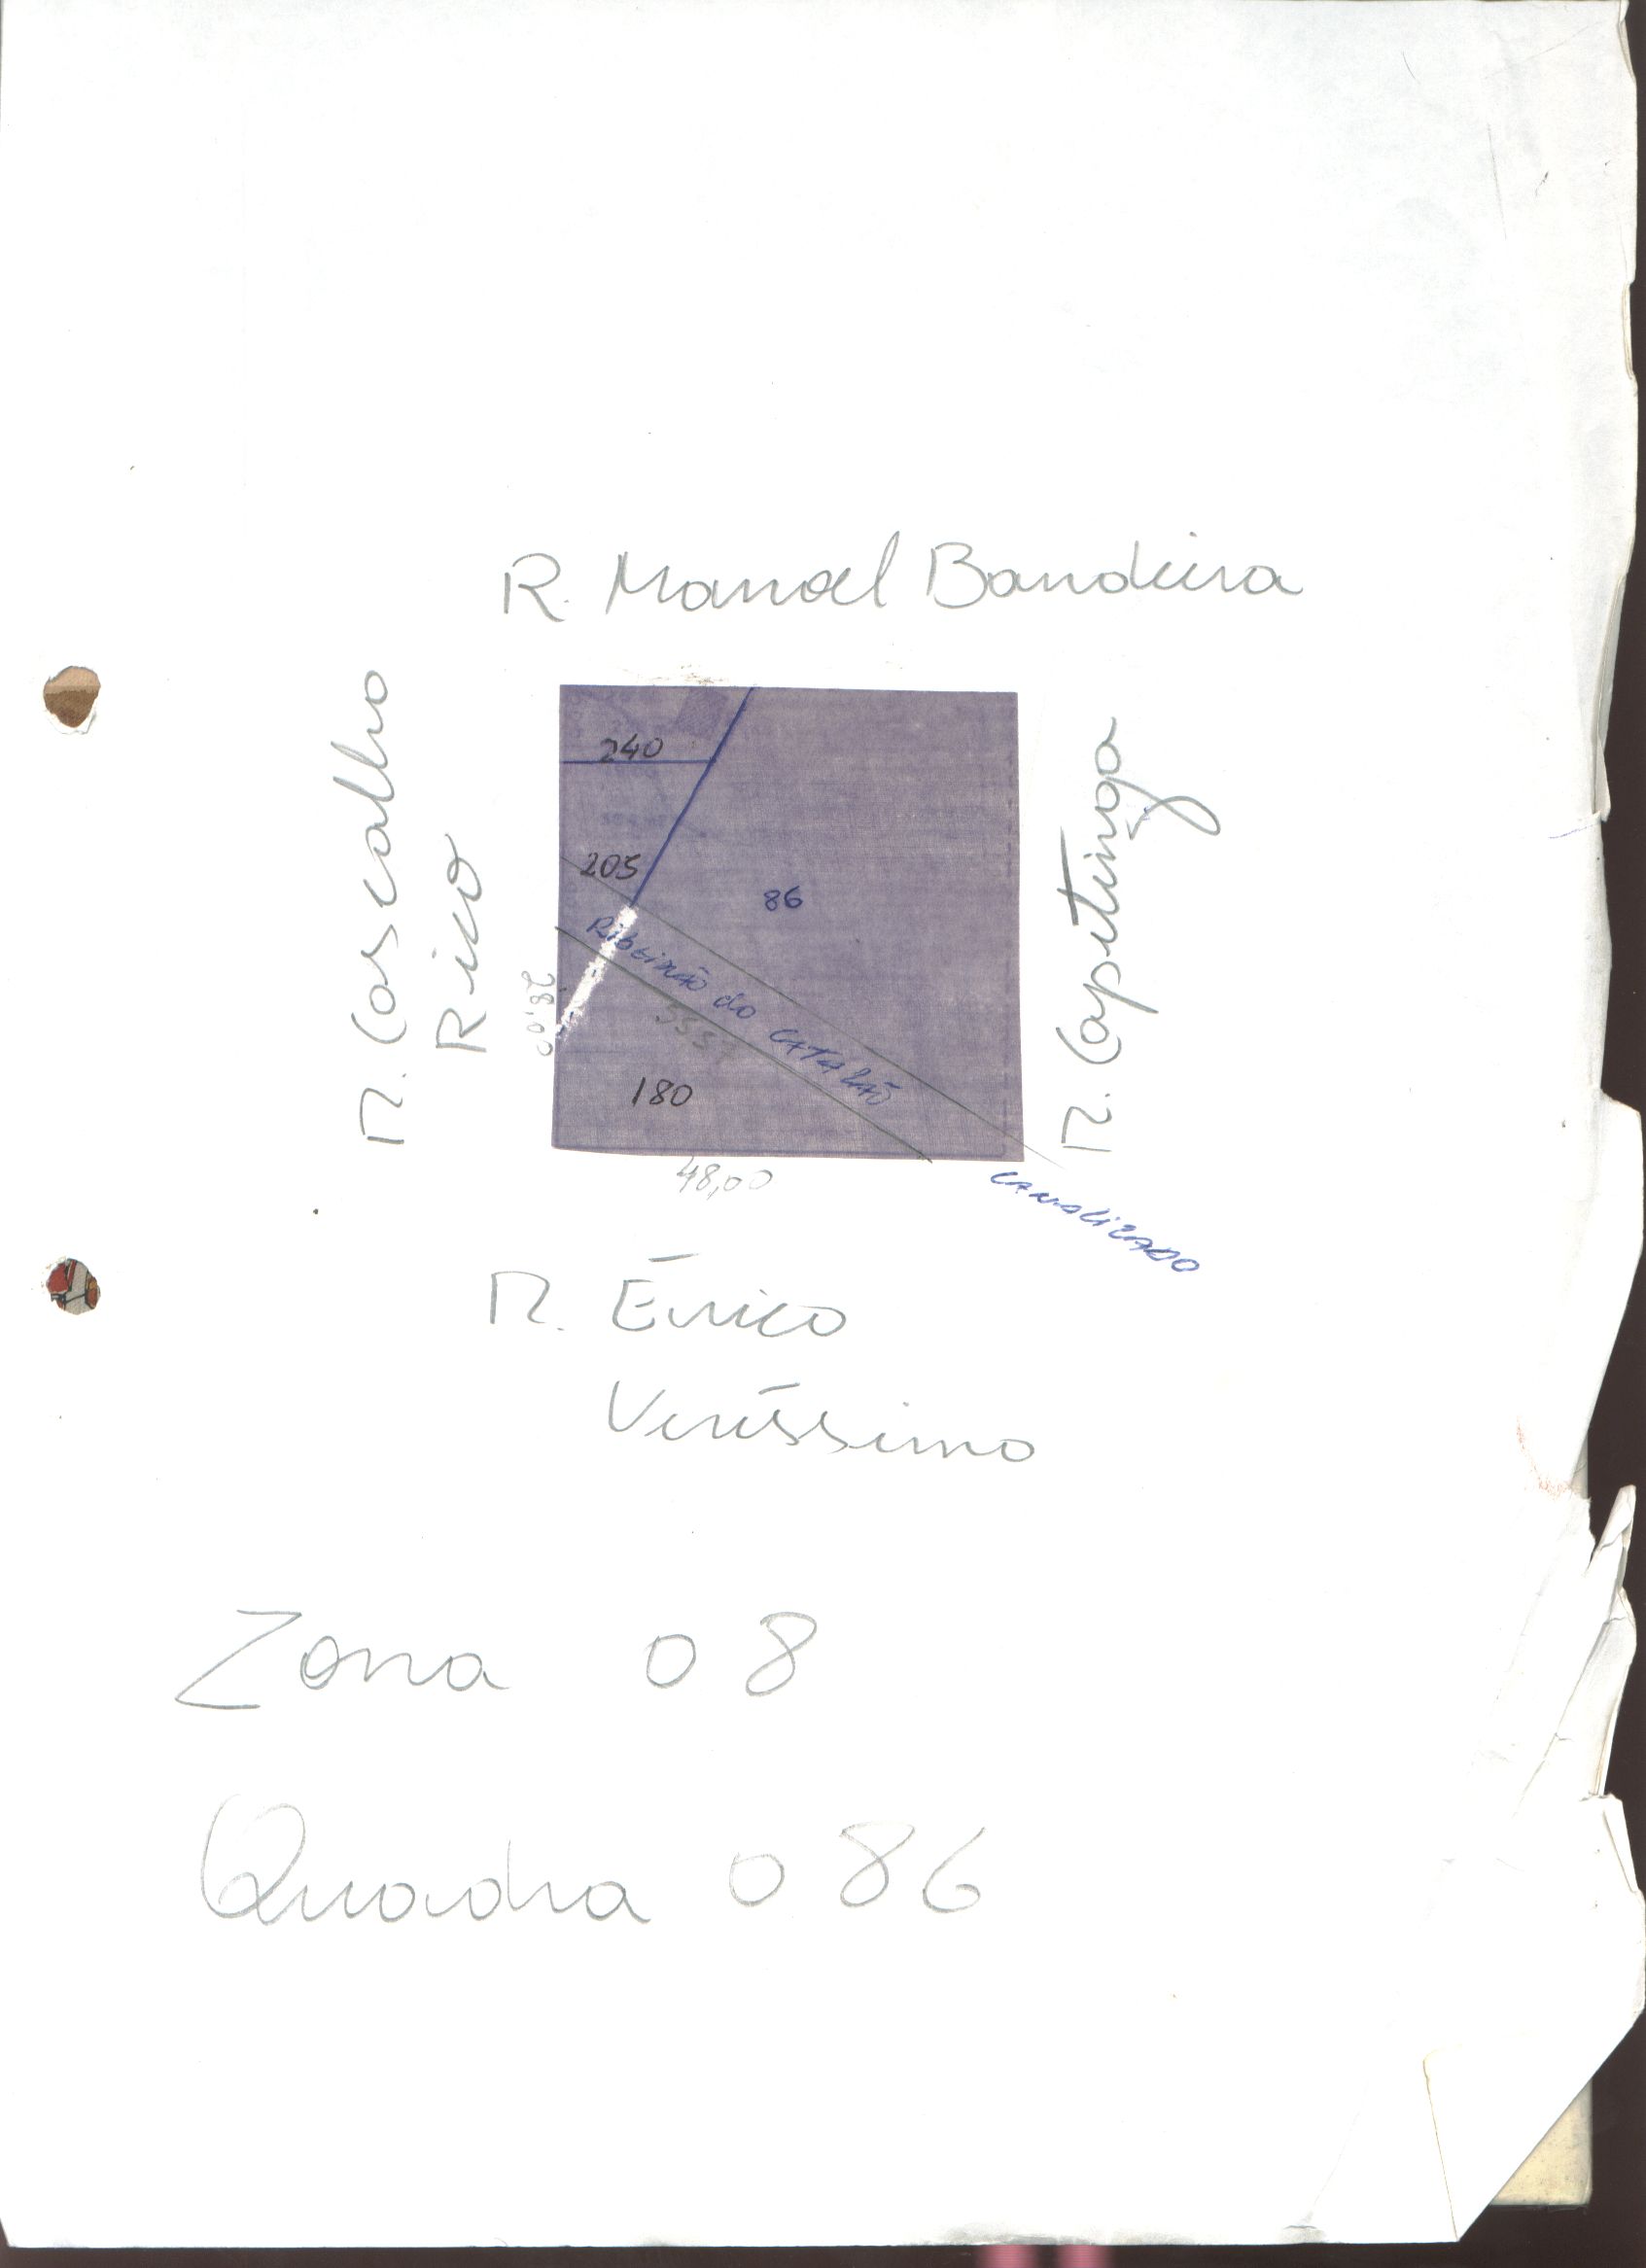 R. Manoel Bandeira
R. Cascalho
Rico
R. Capitinga
240
205
86
Ribeirão do CATALÃO
28,00
180
48,00
CANALIZADO
R. Érico
Veríssimo
Zona 08
Quadra 086